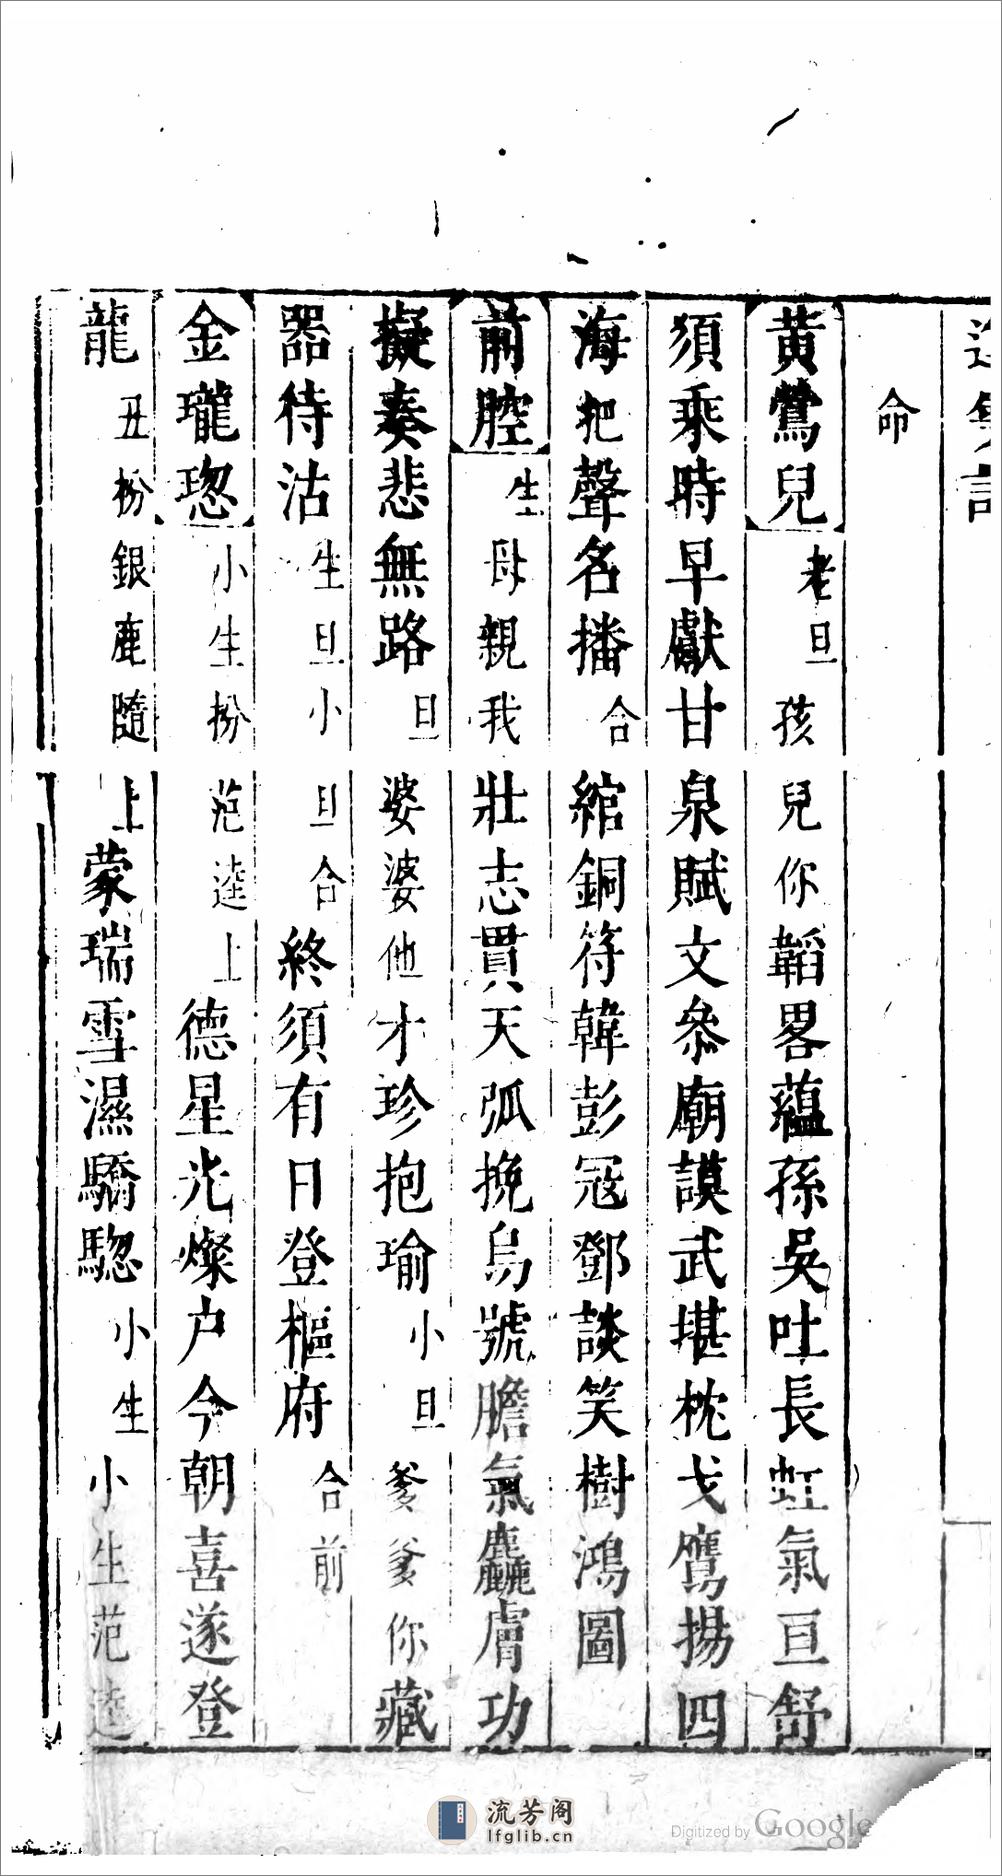 命
黃鶯兒老旦孩兒你韜畧蘊孫吳吐長虹氣亘舒
須乘時早獻甘泉賦文叅廟謨武堪枕戈鷹揚四
海把聲名播合綰銅符韓彭冦鄧談笑樹鴻圖
前腔生母親我壯志貫天弧挽烏號膽氣麤膚功
擬奏悲無路旦婆婆他才珍抱瑜小旦爹爹你藏
器待沽生旦小旦合終須有日登樞府合前
金瓏璁小生扮范逵上德星光燦户今朝喜遂登
龍丑扮銀鹿隨上蒙瑞雪濕驕驄小生小生范逵
流芳阁
lfglib.cn
Digitized by Google